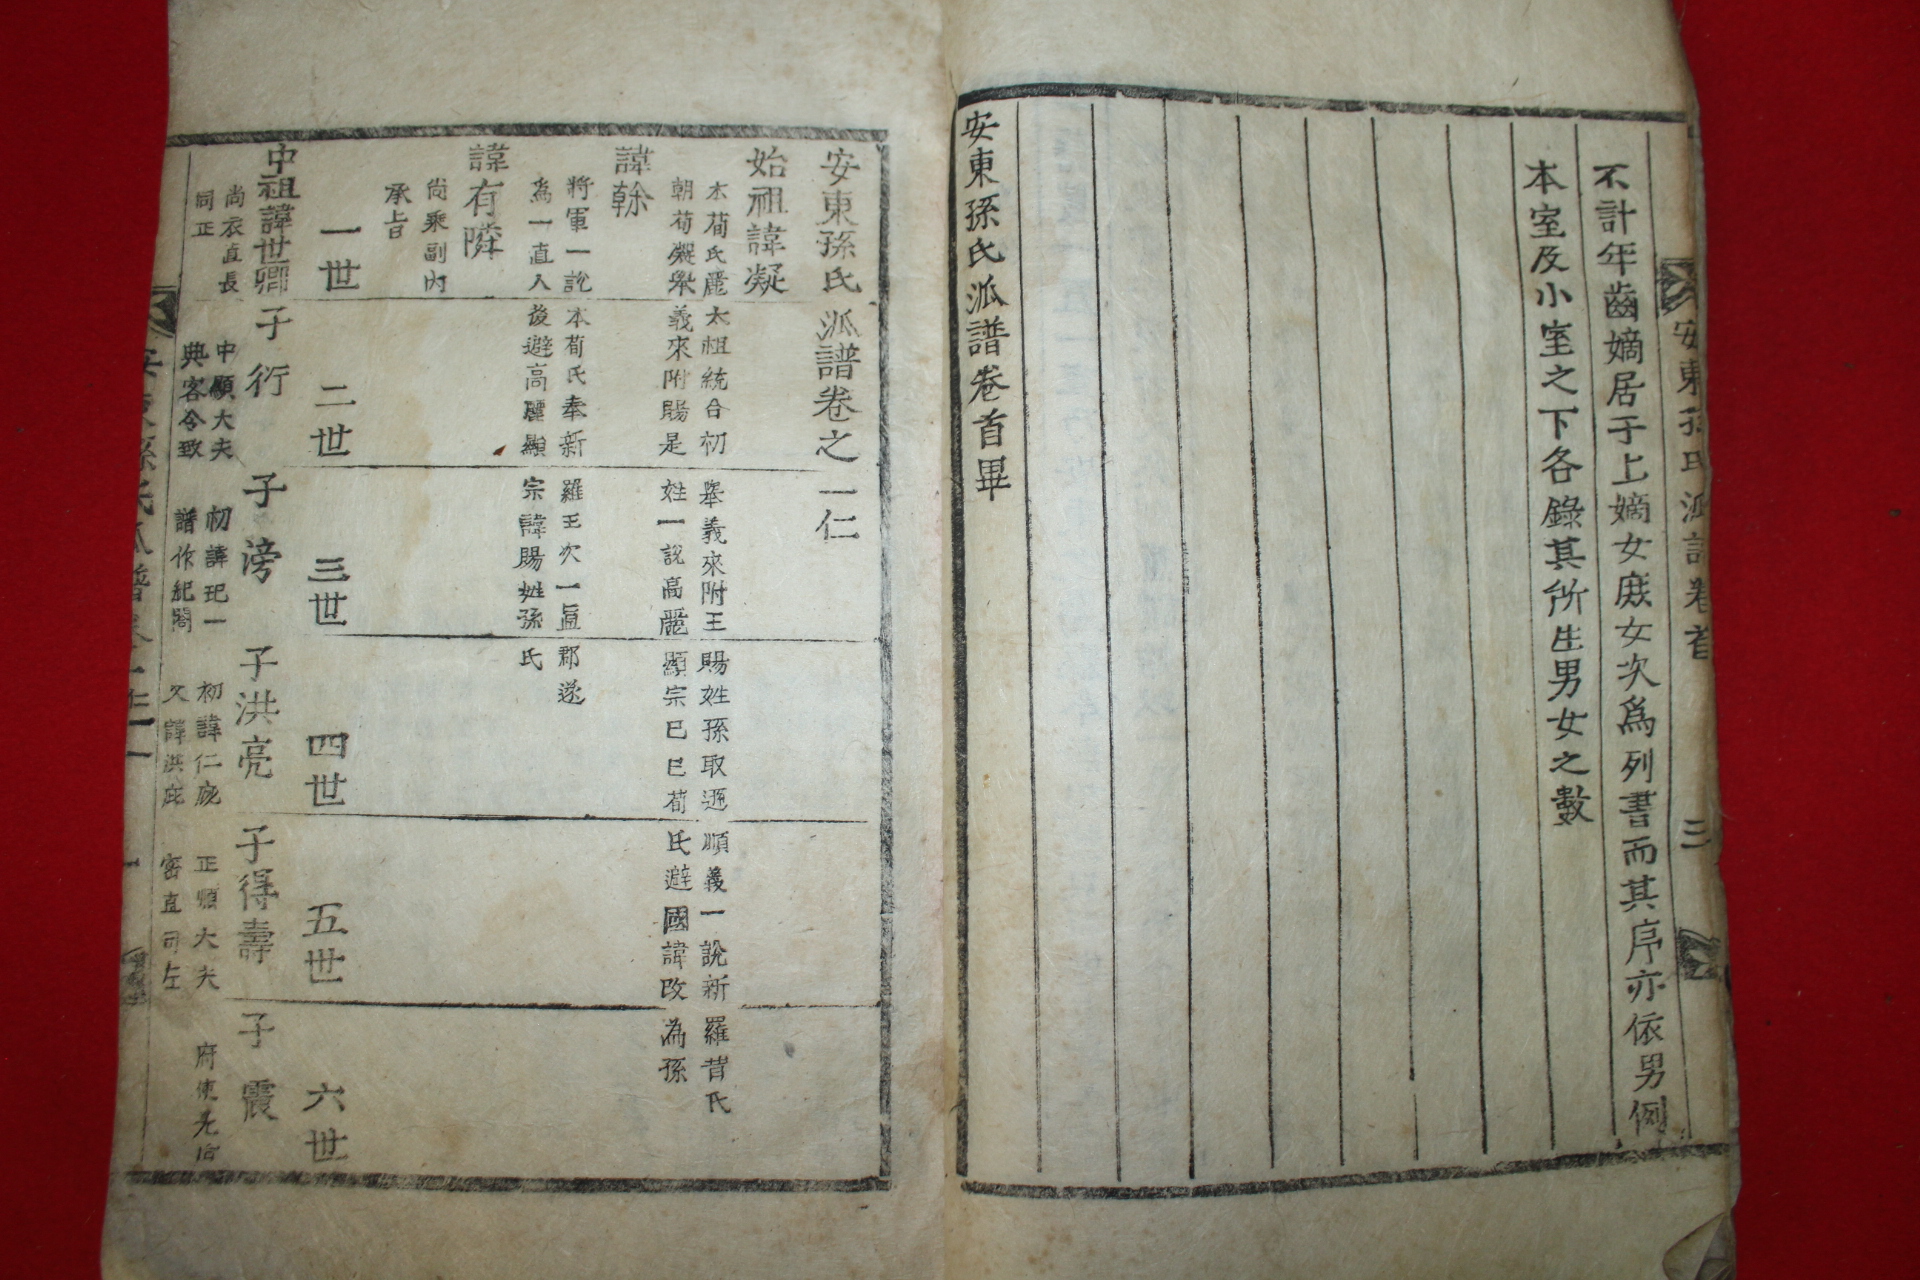 安東孫氏派譜卷首 三
不計年齒嫡居于上嫡女庶女次爲列書而其序亦依男例
本室及小室之下各錄其所生男女之數
安東孫氏派譜卷首畢
安東孫氏派譜卷之一仁
始祖諱凝
本荀氏麗太祖統合初擧義來附王賜姓孫取遜順義一說新羅昔氏
朝荀凝擧義來附賜是姓一說高麗顯宗己巳荀氏避國諱改為孫
諱幹
將軍一說本荀氏奉新羅王次一直郡遂
為一直人後避高麗顯宗諱賜姓孫氏
諱有隣
尙乘副內
承旨
一世 二世 三世 四世 五世 六世
中祖諱世卿 子衍 子滂 子洪亮 子得壽 子震
尙衣直長 中顯大夫 初諱玘一 初諱仁庇 正順大夫 府使
同正 典客令致 譜作紀閣 又諱洪庇 密直司左